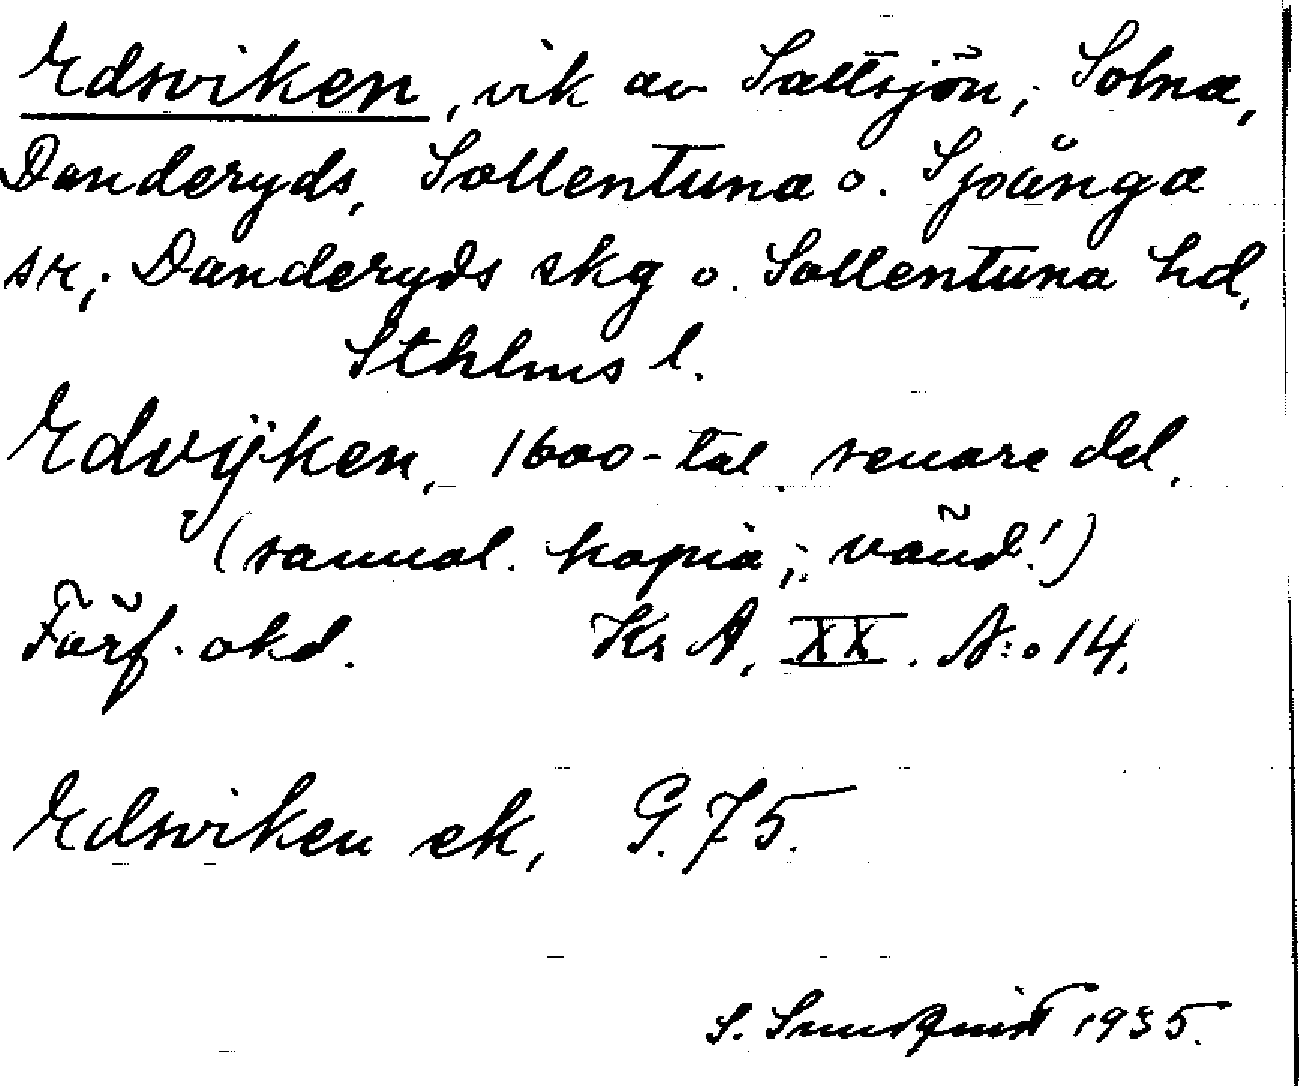 Edsviken, vik av Saltsjön; Solna,
Danderyds, Sollentuna o. Spånga
sn; Danderyds skg o. Sollentuna hd,
Sthlms l.
Edvijken, 1600-tal. senare del.
(samual. kopia; vänd!)
Förf. okd. Kr A, XX. N:o 14.
Edsviken ek, G. 75.
S. Sundqvist 1935.